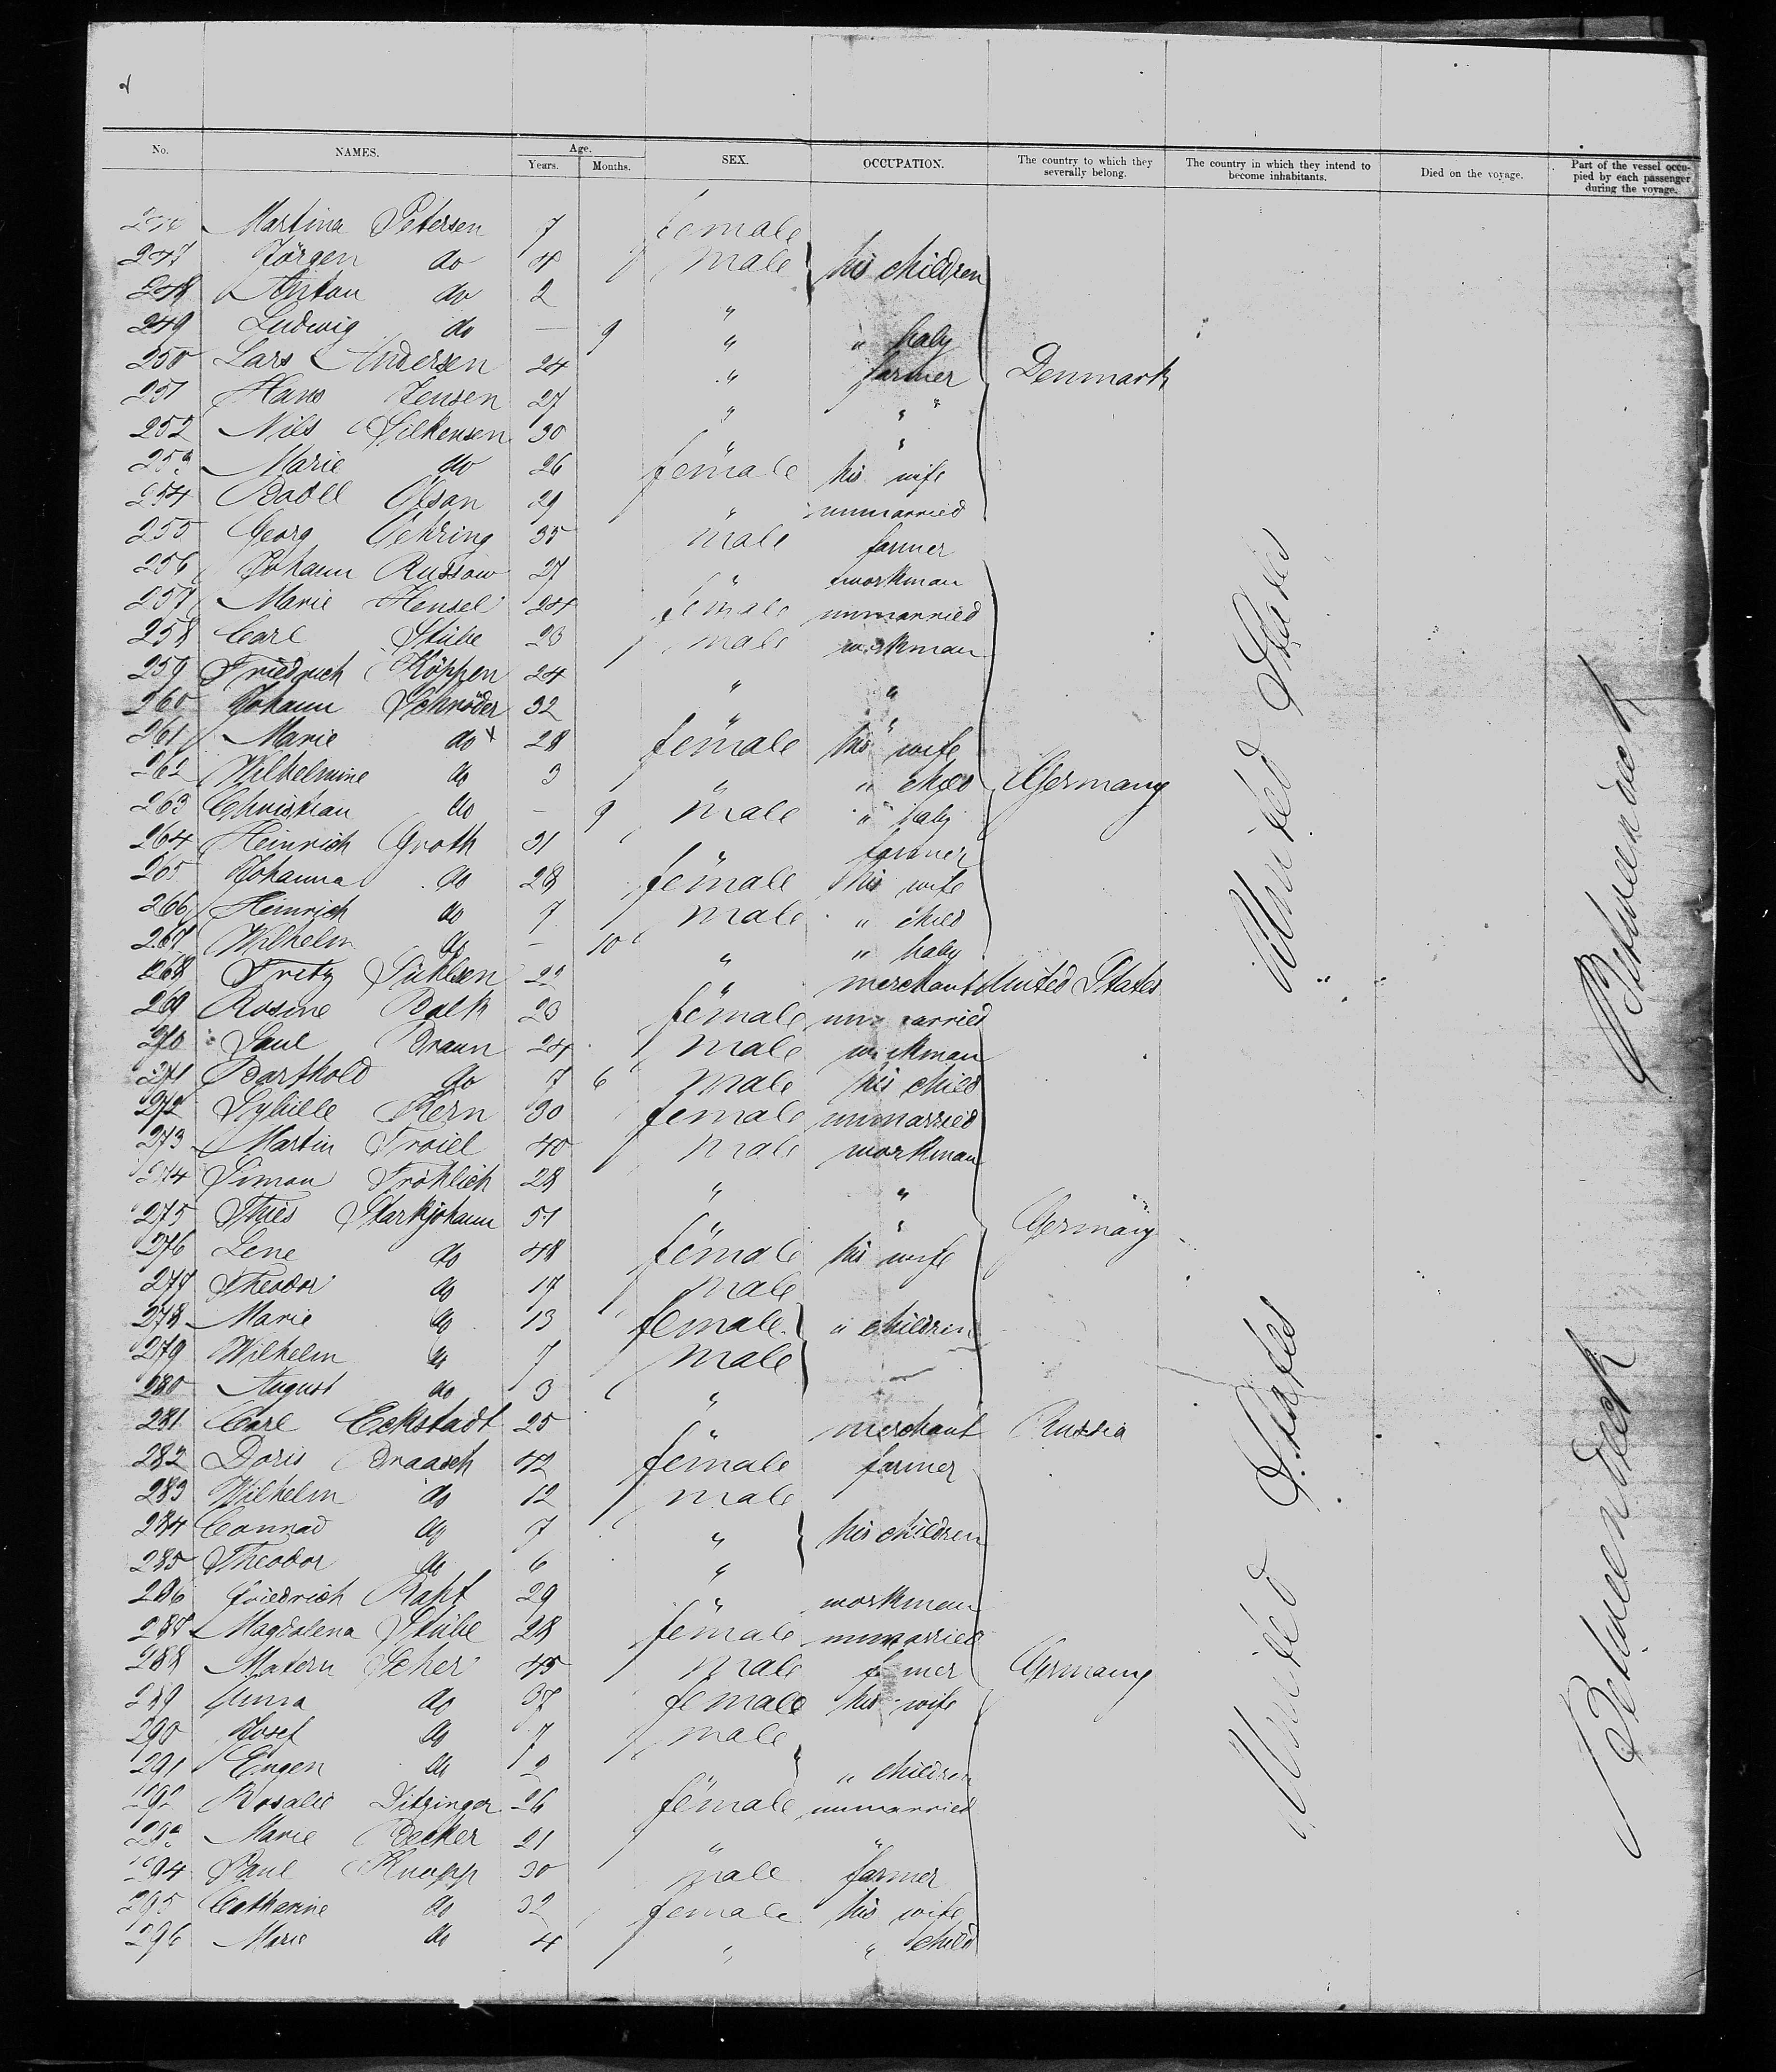 No. NAMES. Age. Years. Months. SEX. OCCUPATION. The country to which they severally belong. The country in which they intend to become inhabitants. Died on the voyage. Part of the vessel occupied by each passenger during the voyage.
Martina Petersen 7 female
247 Jörgen do 4 male } his children
248 Anton do 2 "
249 Ludwig do — 9 " " baby
250 Lars Andersen 24 " farmer Denmark
251 Hans Jensen 27 " "
252 Nils Silkensen 30 " "
253 Marie do 26 female his wife
254 Bodil Olsan 29 " unmarried
255 Georg Gehring 35 male farmer
256 Johann Russow 27 " workman
257 Marie Hensel 24 female unmarried
258 Carl Stübe 23 male workman
259 Friedrich Köppen 24 " "
260 Johann Schröder 32 " "
261 Marie do 28 female his wife
262 Wilhelmine do 3 " " child Germany
263 Christian do — 9 male " baby
264 Heinrich Groth 31 " farmer
265 Johanna do 28 female his wife
266 Heinrich do 7 male " child
267 Wilhelm do — 10 " " baby
268 Fritz 22 " merchant United States
269 Rosine Balk 23 female unmarried
270 Paul Braun 24 male workman
271 Barthold do 7 6 male his child
272 Sybille Kern 30 female unmarried
273 Martin Troiel 40 male workman
274 Simon Fröhlich 28 " "
275 Thies Starkjohann 51 " " Germany
276 Lene do 48 female his wife
277 Theodor do 17 male
278 Marie do 13 female } " children
279 Wilhelm do 7 male
280 August do 3 "
281 Carl Eckstadt 25 " merchant Russia
282 Doris Draasch 42 female farmer
283 Wilhelm do 12 male
284 Conrad do 7 " } his children
285 Theodor do 6 "
286 Friedrich Raht 29 " workman
287 Magdalena Stübe 28 female unmarried
288 Matern Scher 45 male farmer Germany
289 Anna do 37 female his wife
290 Josef do 7 male
291 Eugen do 2 " } " children
292 Rosalie Ditzinger 26 female unmarried
293 Marie Becker 21 " "
294 Paul Knapp 30 male farmer
295 Catharine do 32 female his wife
296 Marie do 4 " " child
United States
United States
Between deck
Between deck